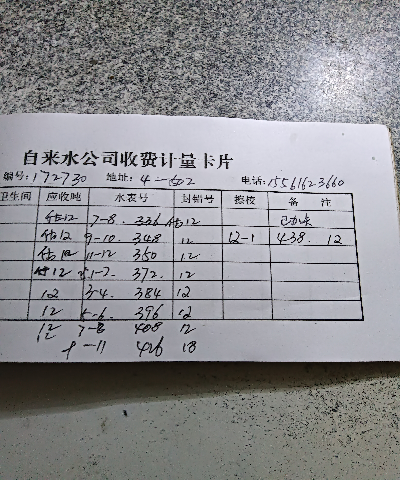 自来水公司收费计量卡片
编号:172730 地址: 4-602 电话:15561623660
卫生间 应收吨 水表号 封铅号 擦校 备 注
估12 7-8. 336 估12
估12 9-10. 348 12 12-1 438. 12
估12 11-12 350 12
估12 1-2. 372. 12
12 3-4. 384 12
12 5-6. 396 12
12 7-8 408 12
9-11 426 18